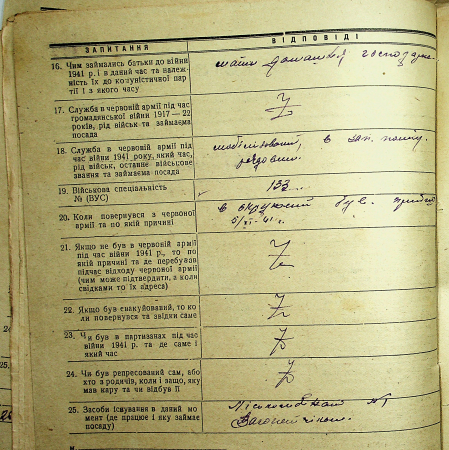 ЗАПИТАННЯ
ВІДПОВІДІ
16. Чим займались батьки до війни
1941 р. і в даний час та належ-
ність їх до комуністичної пар-
тії і з якого часу
мати домашня господарка
17. Служба в червоній армії під час
громадянської війни 1917—22
років, рід військ та займаєма
посада
18. Служба в червоній армії під
час війни 1941 року, який час,
рід військ, останнє військове
звання та займаєма посада
мобілізований, в зап. полку,
рядовим.
19. Військова спеціальність
№ (ВУС)
133
20. Коли повернувся з червоної
армії та по якій причині
в був
21. Якщо не був в червоній армії
під час війни 1941 р., то по
якій причині та де перебував
під час відходу червоної армії
(чим може підтвердити, а коли
свідками то їх адреса)
22. Якщо був евакуйований, то ко-
ли повернувся та звідки саме
23. Чи був в партизанах під час
війни 1941 р. та де саме і
який час
24. Чи був репресований сам, або
хто з родичів, коли і защо, яку
мав кару та чи відбув її
25. Засоби існування в даний мо-
мент (де працює і яку займає
посаду)
№1